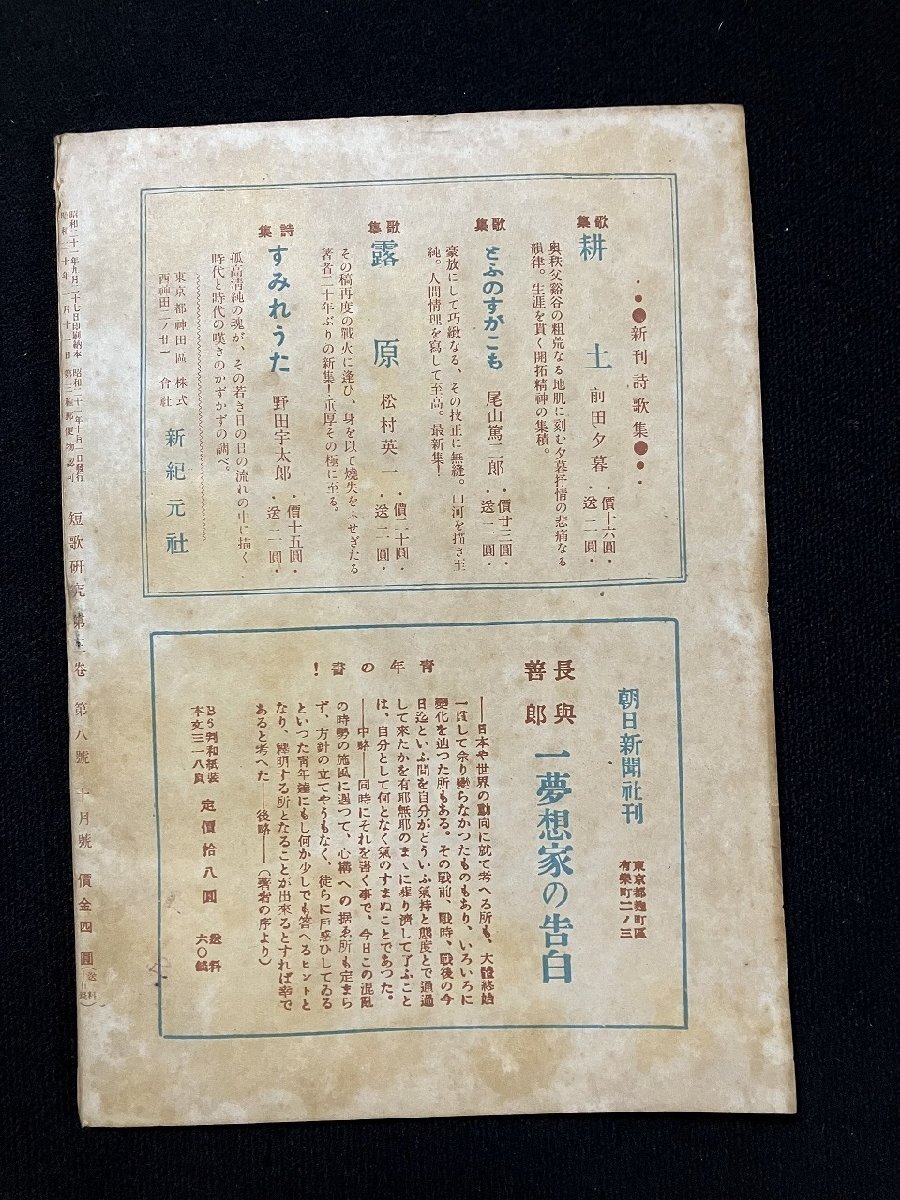 ●新刊詩歌集●
歌集 耕土 前田夕暮 ・價十六圓・ ・送二圓・
奥秩父谿谷の粗荒なる地肌に刻む夕暮抒情の悲痛なる
韻律。生涯を貫く開拓精神の集積。
歌集 とふのすがこも 尾山篤二郎 ・價廿三圓・ ・送二圓・
豪放にして巧緻なる、その技正に無縫。山河を描き至
純。人間情理を寫して至高。最新集！
歌集 露原 松村英一 ・價二十圓・ ・送二圓・
その稿再度の戰火に逢ひ、身を以て燒失をふせぎたる
著者二十年ぶりの新集！重厚その極に至る。
詩集 すみれうた 野田宇太郎 ・價十五圓・ ・送二圓・
孤高清純の魂が、その若き日の日の流れの中に描く
時代と時代の嘆きのかずかずの調べ。
東京都神田區
西神田二ノ廿一
株式會社 新紀元社
朝日新聞社刊
東京都麹町區
有樂町二ノ三
長與善郎 一夢想家の告白
靑年の書！
――日本や世界の動向に就て考へる所も、大體終始
一貫して余り變らなかつたものもあり、いろいろに
變化を辿つた所もある。その戰前、戰時、戰後の今
日迄といふ間を自分がどういふ氣持と態度とで通過
して來たかを有耶無耶のまゝに葬り濟して了ふこと
は、自分として何となく氣のすまぬことであつた。
――中略――同時にそれを書く事で、今日この混亂
の時勢の施風に遇つて、心構への据ゑ所も定まら
ず、方針の立てやうもなく、徒らに戸惑ひしてゐる
といつた靑年達にもし何か少しでも答へるヒントと
なり、裨明する所となることが出來るとすれば幸で
あると考へた――後略――（著者の序より）
B6判和紙裝
本文三一八頁
定價拾八圓
送料
六〇錢
昭和二十一年九月二十七日印刷納本 昭和二十一年十月一日發行
第三種郵便物認可
短歌研究 第三卷 第八號 十月號 價金四圓